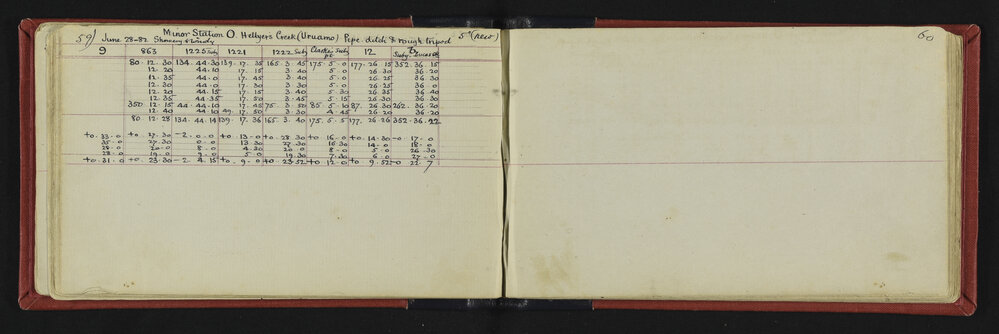 59) June 28-82 Minor Station O. Hellyers Creek (Uruamo) Pipe ditch & rough tripod 5" (new)
Showery & Windy
9 863 1225 Suby 1221 1222 Suby Clarke Suby 12
80. 12. 30 134. 44. 30 139. 17. 35 165. 3. 40 175. 5. 0 177. 26. 15 352. 36. 15
12. 20 44. 10 17. 15 3. 40 5. 0 26. 30 36. 20
12. 35 44. 0 17. 45 3. 40 5. 0 26. 25 36. 30
12. 30 44. 0 17. 30 3. 30 5. 0 26. 20 36. 20
12. 20 44. 15 17. 15 3. 40 5. 30 26. 35 36. 40
12. 35 44. 35 17. 50 3. 45 5. 15 26. 30 36. 30
350. 12. 15 44. 44. 10 17. 45 75. 3. 50 85. 5. 10 87. 26. 30 262. 36. 20
12. 40 44. 10 49. 17. 50 3. 30 4. 45 26. 20 36. 20
80. 12. 28 134. 44. 14 139. 17. 36 165. 3. 40 175. 5. 5 177. 26. 26 352. 36. 22
+0. 33. 0 +0. 27. 30 -2. 0. 0 +0. 13. 0 +0. 28. 30 +0. 16. 0 +0. 14. 30 -0. 17. 0
35. 0 27. 30 0. 0 13. 30 27. 30 16. 30 14. 0 18. 0
28. 0 20. 0 8. 0 4. 30 20. 0 8. 0 5. 0 26. 30
28. 0 19. 0 9. 0 5. 0 19. 30 7. 30 6. 0 27. 0
+0. 31. 0 +0. 23. 30 -2. 4. 15 +0. 9. 0 +0. 23. 52 +0. 12. 0 +0. 9. 52 -0. 22. 7
60